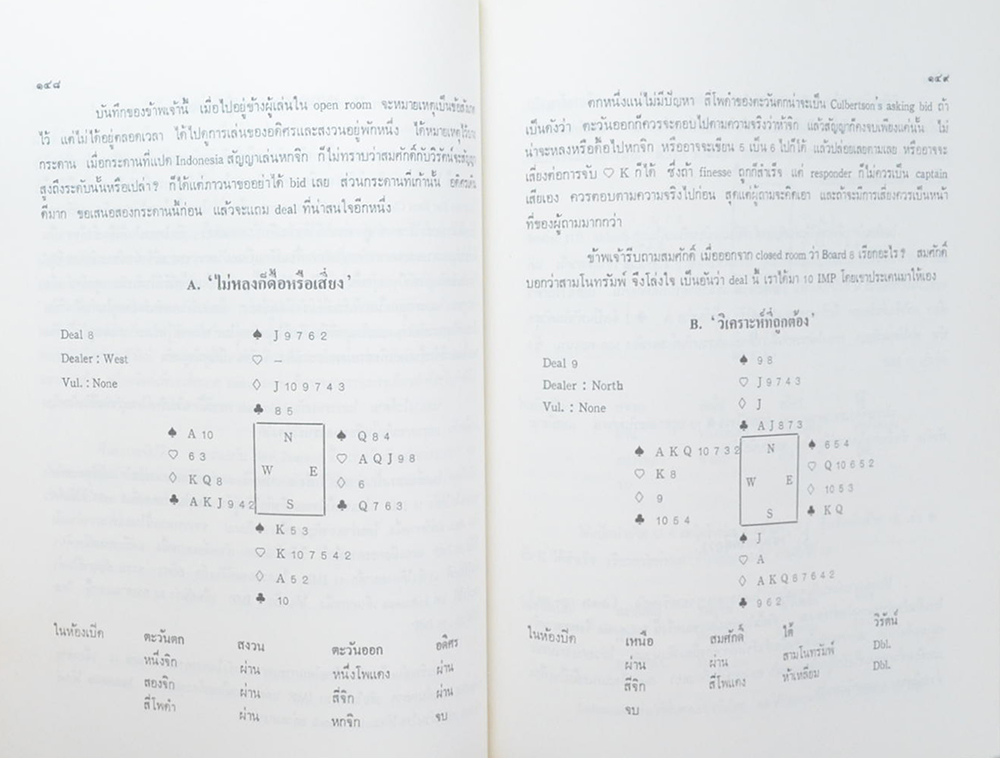 ๑๔๘
บันทึกของข้าพเจ้านี้ เมื่อไปอยู่ข้างผู้เล่นใน open room จะหมายเหตุเป็นข้อสังเกต
ไว้ แต่ไม่ได้อยู่ตลอดเวลา ได้ไปดูการเล่นของอดิศรและสงวนอยู่พักหนึ่ง ได้หมายเหตุไว้บาง
กระดาน เมื่อกระดานที่แปด Indonesia สัญญาเล่นหกจิก ก็ไม่ทราบว่าสมศักดิ์กับวิรัตน์จะสัญญา
สูงถึงระดับนั้นหรือเปล่า? ก็ได้แต่ภาวนาขออย่าได้ bid เลย ส่วนกระดานที่เก้านั้น อดิศร
ดีมาก ขอเสนอสองกระดานนี้ก่อน แล้วจะแถม deal ที่น่าสนใจอีกหนึ่ง
A. 'ไม่หลงก็ดื้อหรือเสี่ยง'
Deal 8
Dealer : West
Vul. : None
♠ J 9 7 6 2
♡ —
♢ J 10 9 7 4 3
♣ 8 5
♠ A 10
♡ 6 3
♢ K Q 8
♣ A K J 9 4 2
N
W E
S
♠ Q 8 4
♡ A Q J 9 8
♢ 6
♣ Q 7 6 3
♠ K 5 3
♡ K 10 7 5 4 2
♢ A 5 2
♣ 10
ในห้องเปิด ตะวันตก สงวน ตะวันออก อดิศร
หนึ่งจิก ผ่าน หนึ่งโพแดง ผ่าน
สองจิก ผ่าน สี่จิก ผ่าน
สี่โพดำ ผ่าน หกจิก จบ
๑๔๙
ตกหนึ่งแน่ไม่มีปัญหา สี่โพดำของตะวันตกน่าจะเป็น Culbertson's asking bid ถ้า
เป็นดังว่า ตะวันออกก็ควรจะตอบไปตามความจริงว่าห้าจิก แล้วสัญญาก็คงจบเพียงแค่นั้น ไม่
น่าจะหลงหรือดื้อไปหกจิก หรืออาจจะเขียน 5 เป็น 6 ไปก็ได้ แล้วปล่อยเลยตามเลย หรืออาจจะ
เสี่ยงต่อการจับ ♡ K ก็ได้ ซึ่งถ้า finesse ถูกก็สำเร็จ แต่ responder ก็ไม่ควรเป็น captain
เสียเอง ควรตอบตามความจริงไปก่อน สุดแต่ผู้ถามจะคิดเอา และถ้าจะมีการเสี่ยงควรเป็นหน้า
ที่ของผู้ถามมากกว่า
ข้าพเจ้ารีบถามสมศักดิ์ เมื่อออกจาก closed room ว่า Board 8 เรียกอะไร? สมศักดิ์
บอกว่าสามโนทรัมพ์ จึงโล่งใจ เป็นอันว่า deal นี้ เราได้มา 10 IMP โดยเขาประเคนมาให้เอง
B. 'วิเคราะห์ที่ถูกต้อง'
Deal 9
Dealer : North
Vul. : None
♠ 9 8
♡ J 9 7 4 3
♢ J
♣ A J 8 7 3
♠ A K Q 10 7 3 2
♡ K 8
♢ 9
♣ 10 5 4
N
W E
S
♠ 6 5 4
♡ Q 10 6 5 2
♢ 10 5 3
♣ K Q
♠ J
♡ A
♢ A K Q 8 7 6 4 2
♣ 9 6 2
ในห้องปิด เหนือ สมศักดิ์ ใต้ วิรัตน์
ผ่าน ผ่าน สามโนทรัมพ์ Dbl.
สี่จิก สี่โพแดง ห้าเหลี่ยม Dbl.
จบ